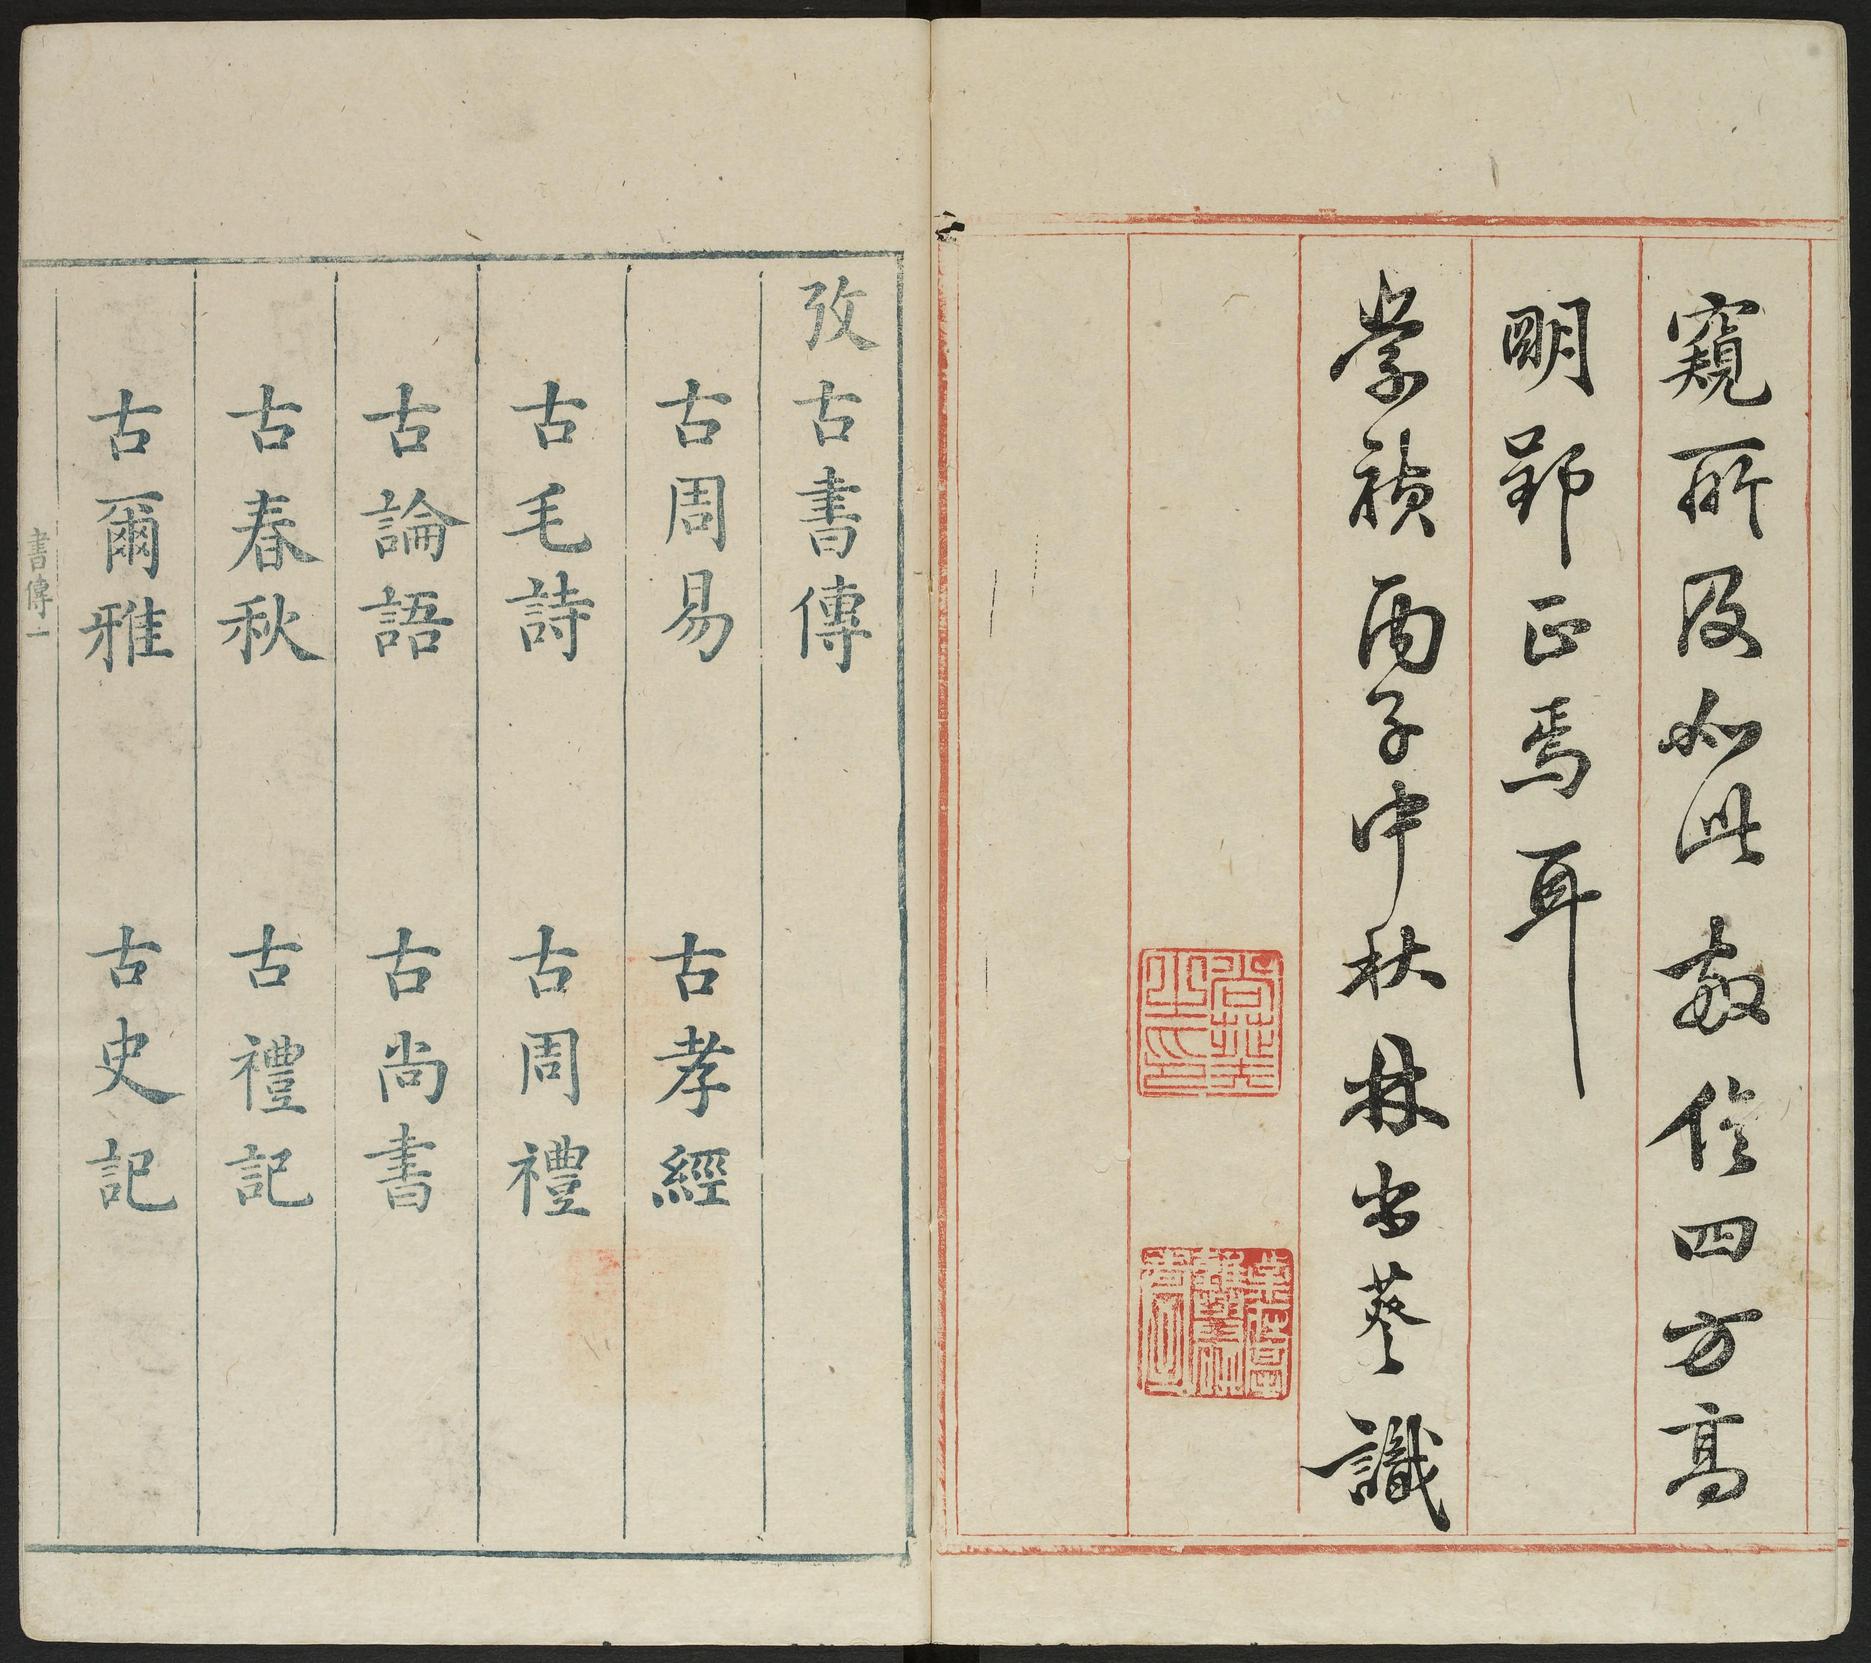 窺所及如此敬俟四方高
明郢正焉耳
崇禎丙子中秋林尚葵識
尚葵之印
攷古書傳
古周易　古孝經
古毛詩　古周禮
古論語　古尚書
古春秋　古禮記
古爾雅　古史記
書傳一